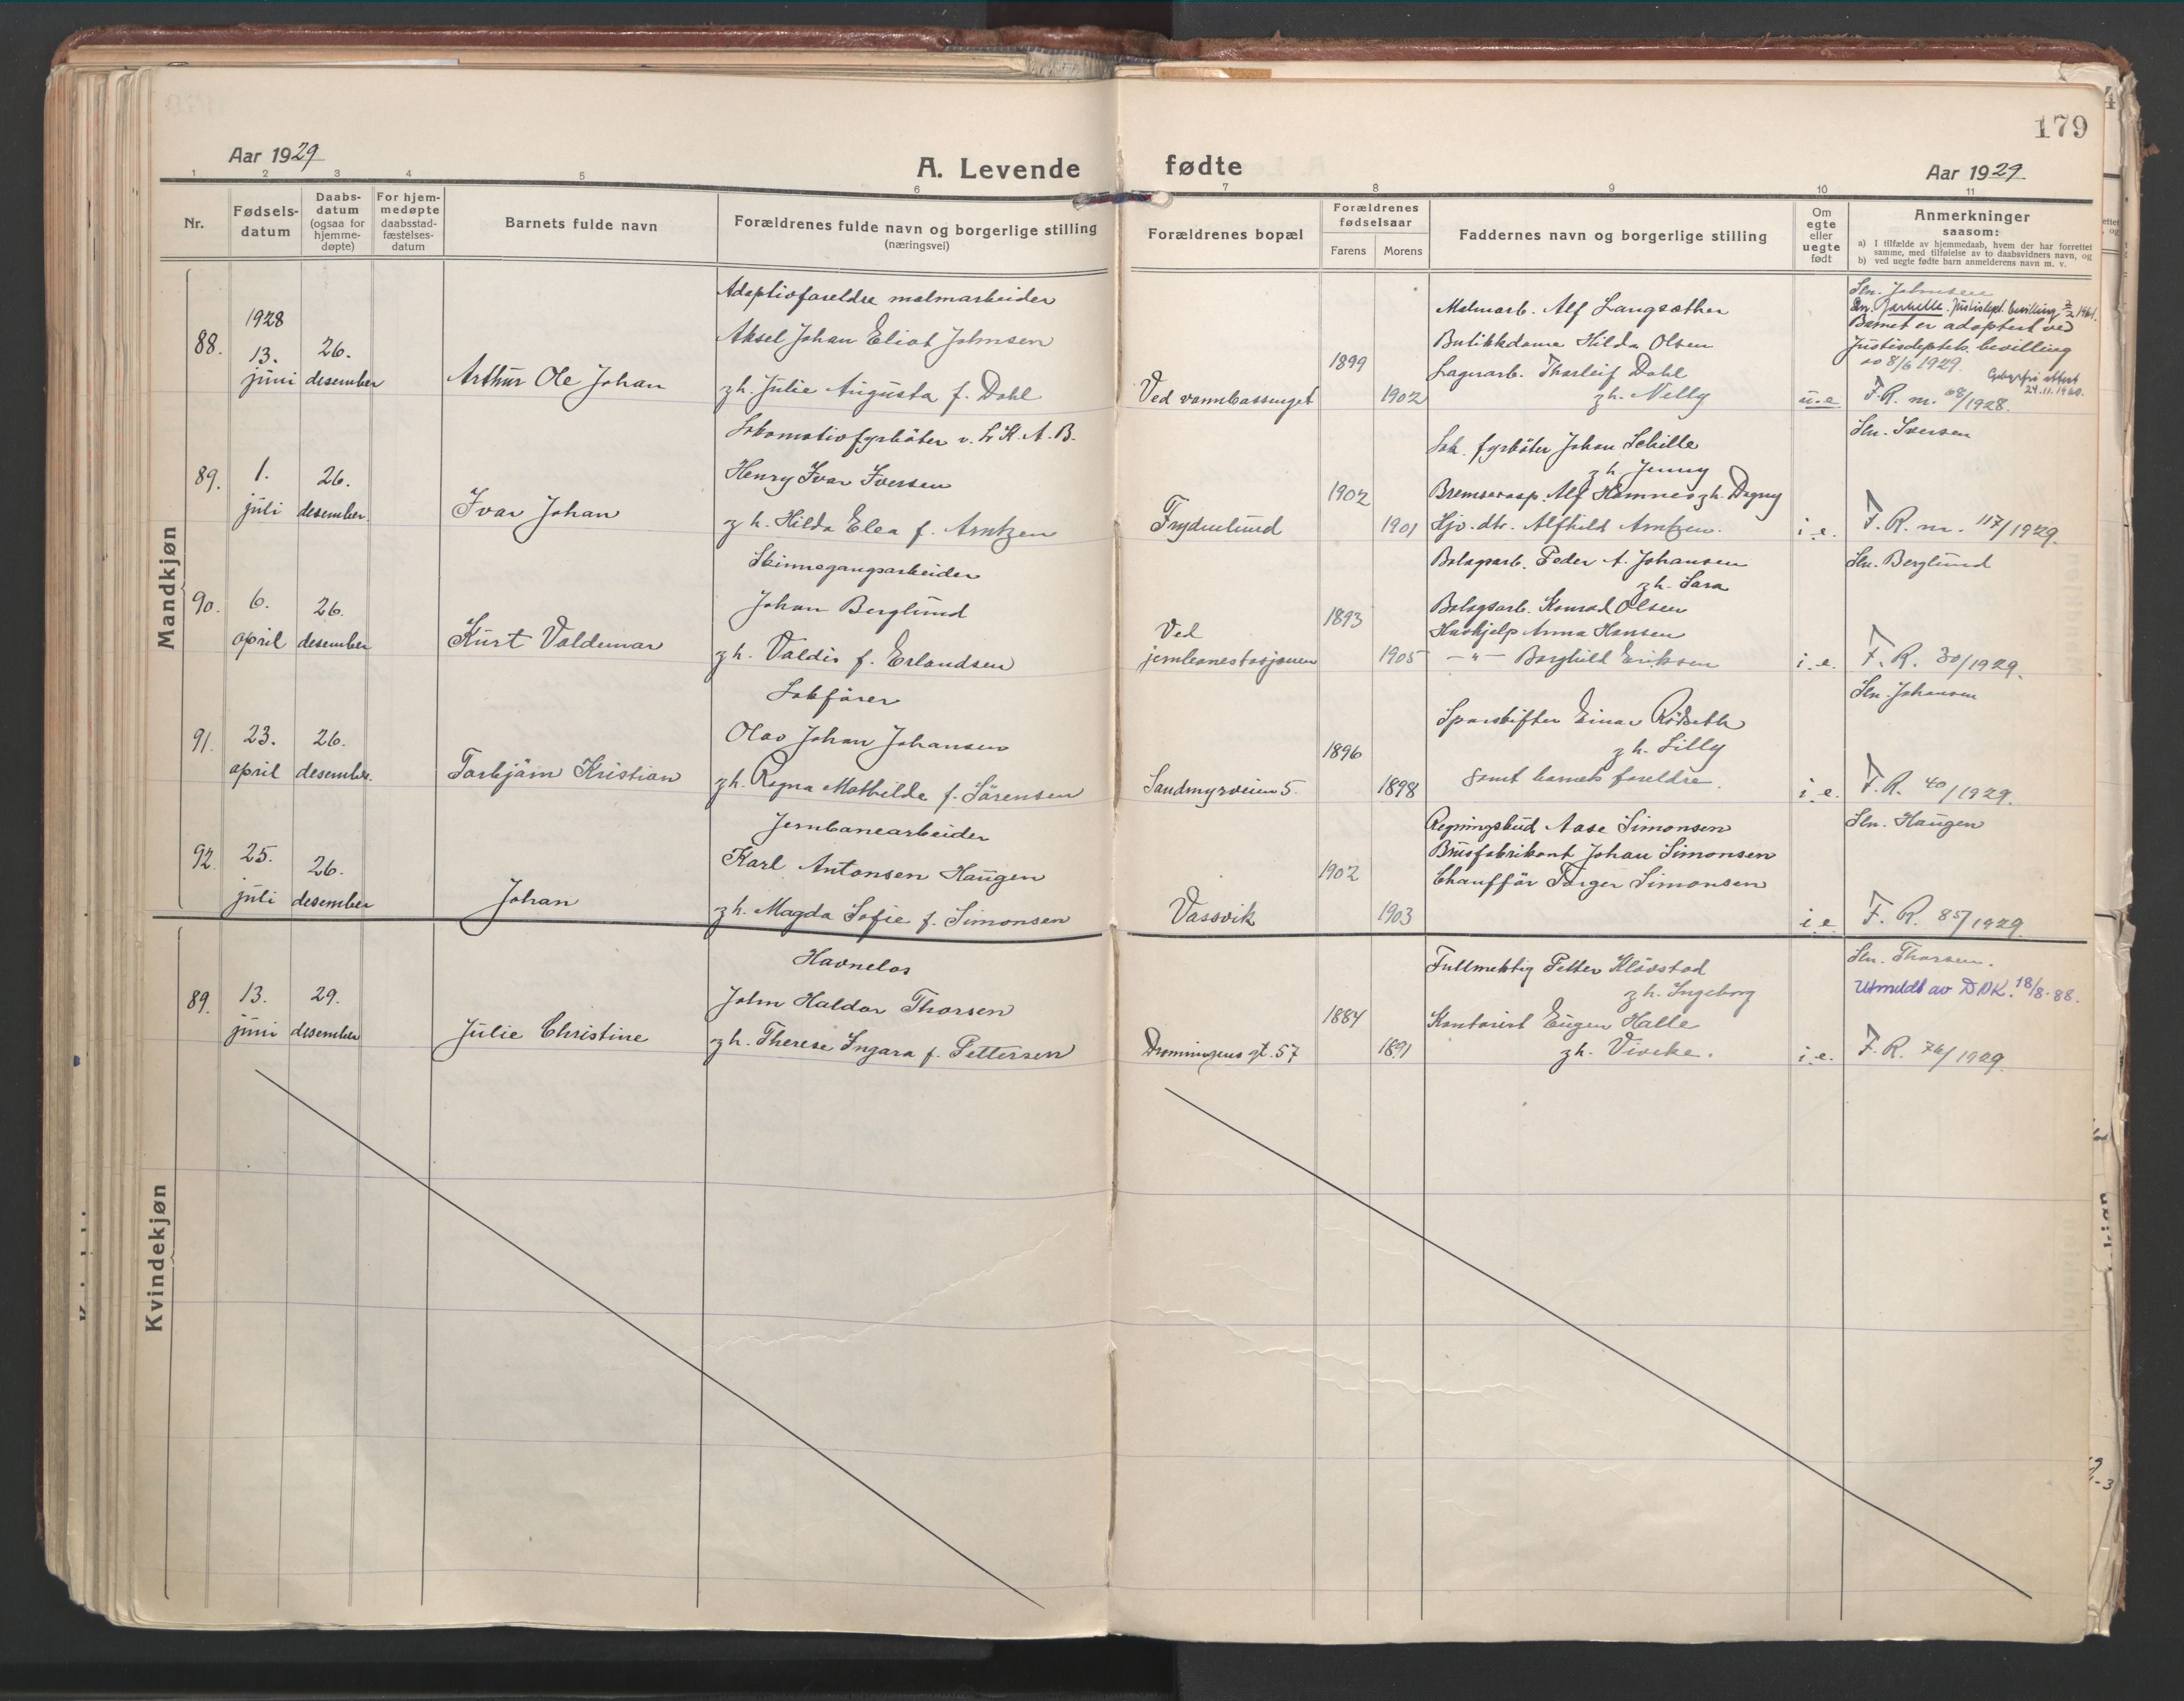 179
Aar 1929
A. Levende fødte
Aar 1929
1 2 3 4 5 6 7 8 9 10 11
Nr.
Fødsels-
datum
Daabs-
datum
(ogsaa for
hjemme-
døpte)
For hjem-
medøpte
daabsstad-
fæstelses-
datum
Barnets fulde navn
Forældrenes fulde navn og borgerlige stilling
(næringsvei)
Forældrenes bopæl
Forældrenes
fødselsaar
Farens Morens
Faddernes navn og borgerlige stilling
Om
egte
eller
uegte
født
Anmerkninger
saasom:
a) I tilfælde av hjemmedaab, hvem der har forrettet
samme, med tilføielse av to daabsvidners navn, og
b) ved uegte fødte barn anmelderens navn m. v.
Mandkjøn
88.
1928
13.
juni
26.
desember
Arthur Ole Johan
Adoptivforeldre malmarbeider
Aksel Johan Eliot Johnsen
g h. Julie Augusta f. Dahl
Ved vannbassenget
1899
1902
Malmarb. Alf Langsæther
Butikkdame Hilda Olsen
Lagerarb. Thorleif Dahl
g h. Nelly
u.e.
Sln. Johnsen
Barnet er adoptert ved
Justisdeptets. bevilling
av 8/6 1929.
24.11.1960.
F.R. nr. 68/1928.
89.
1.
juli
26.
desember.
Ivar Johan
Lokomotivfyrbøter v. L.K.A.B.
Henry Ivar Iversen
g h. Hilda Elea f. Arntzen
Frydenlund
1902
1901
Lok. fyrbøter Johan Schille
g h. Jenny
Bremserasp. Alf Hamnes g h. Dagny
Hjv. dtr. Alfhild Arntzen.
i. e.
Sln. Iversen
F. R. nr. 117/1929.
90.
6.
april
26.
desember
Kurt Valdemar
Skinnegangsarbeider
Johan Berglund
g h. Valdis f. Erlandsen
Ved
jernbanestasjonen
1893
1905
Bolagsarb. Peder A. Johansen
g h. Sara
Bolagsarb. Konrad Olsen
Hushjelp Anna Hansen
— " — Borghild Eriksen
i. e.
Sln. Berglund
F. R. 30/1929.
91.
23.
april
26.
desember.
Torbjørn Kristian
Lokfører
Olav Johan Johansen
g h. Ragna Mathilde f. Sørensen
Sandmyrveien 5.
1896
1898
Sporskifter Einar Rødseth
g h. Lilly
samt barnets foreldre.
i. e.
Sln. Johansen
F. R. 40/1929.
92.
25.
juli
26.
desember
Johan
Jernbanearbeider
Karl Antonsen Haugen
g h. Magda Sofie f. Simonsen
Vassvik
1902
1903
Regningsbud Aase Simonsen
Brusfabrikant Johan Simonsen
Chauffør Torger Simonsen
i. e.
Sln. Haugen
F. R. 85/1929.
Kvindekjøn
89.
13.
juni
29.
desember
Julie Christine
Havnelos
John Haldor Thorsen
g h. Therese Ingara f. Pettersen
Dronningens gt. 57
1884
1891
Fullmektig Petter Kløvstad
g h. Ingeborg
Kontorist Eugen Halle
g h. Viveke.
i. e.
Sln. Thorsen.
Utmeldt av DNK. 18/8-88.
F. R. 76/1929